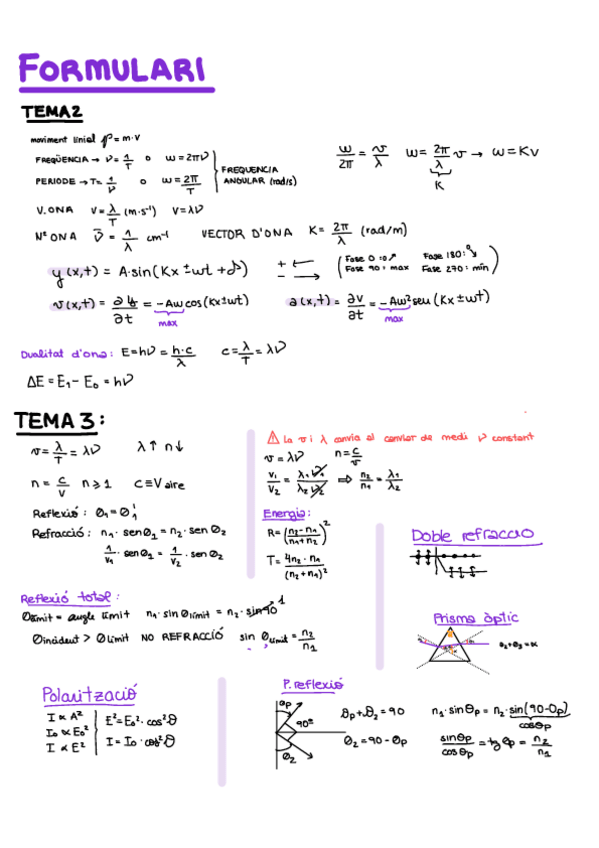 FORMULARI
TEMA 2
moviment linial p = m·v
FREQÜENCIA → ν = 1/T o ω = 2πν
PERIODE → T = 1/ν o ω = 2π/T
FREQUENCIA ANGULAR (rad/s)
ω/2π = v/λ ω = 2π/λ v → ω = Kv
K
V. ONA V = λ/T (m·s⁻¹) V = λν
Nº ONA ν̄ = 1/λ cm⁻¹ VECTOR D'ONA K = 2π/λ (rad/m)
y(x,t) = A·sin(Kx ± ωt + δ) + ← - →
Fase 0:0↗ Fase 180:0↘
Fase 90: max Fase 270: mín
v(x,t) = ∂y/∂t = -Aω cos(Kx±ωt) a(x,t) = ∂v/∂t = -Aω² seu(Kx±ωt)
max max
Dualitat d'ona: E = hν = h·c/λ c = λ/T = λν
ΔE = E₁ - E₀ = hν
TEMA 3:
v = λ/T = λν λ↑ n↓
n = c/v n ⩾ 1 c ≡ V aire
Reflexió: θ₁ = θ₁'
Refracció: n₁·senθ₁ = n₂·senθ₂
1/v₁·senθ₁ = 1/v₂·senθ₂
⚠ La v i λ canvia al canviar de medi ν constant
v = λν n = c/v
v₁/v₂ = λ₁ν/λ₂ν ⇒ n₂/n₁ = λ₁/λ₂
Energia:
R = (n₂-n₁/n₁+n₂)²
T = 4n₂·n₁/(n₂+n₁)²
Doble refracció
Reflexió total:
θlímit = angle límit n₁·sinθlímit = n₂·sin90 1
θincident > θlímit NO REFRACCIÓ sin θlímit = n₂/n₁
Prisma òptic
θ₂+θ₃ = α
Polarització
I ∝ A²
I₀ ∝ E₀²
I ∝ E²
E² = E₀²·cos²θ
I = I₀·cos²θ
P. reflexió
θp
90º
θ₂
θp + θ₂ = 90
θ₂ = 90 - θp
n₁·sinθp = n₂·sin(90-θp)
cosθp
sinθp/cosθp = tgθp = n₂/n₁